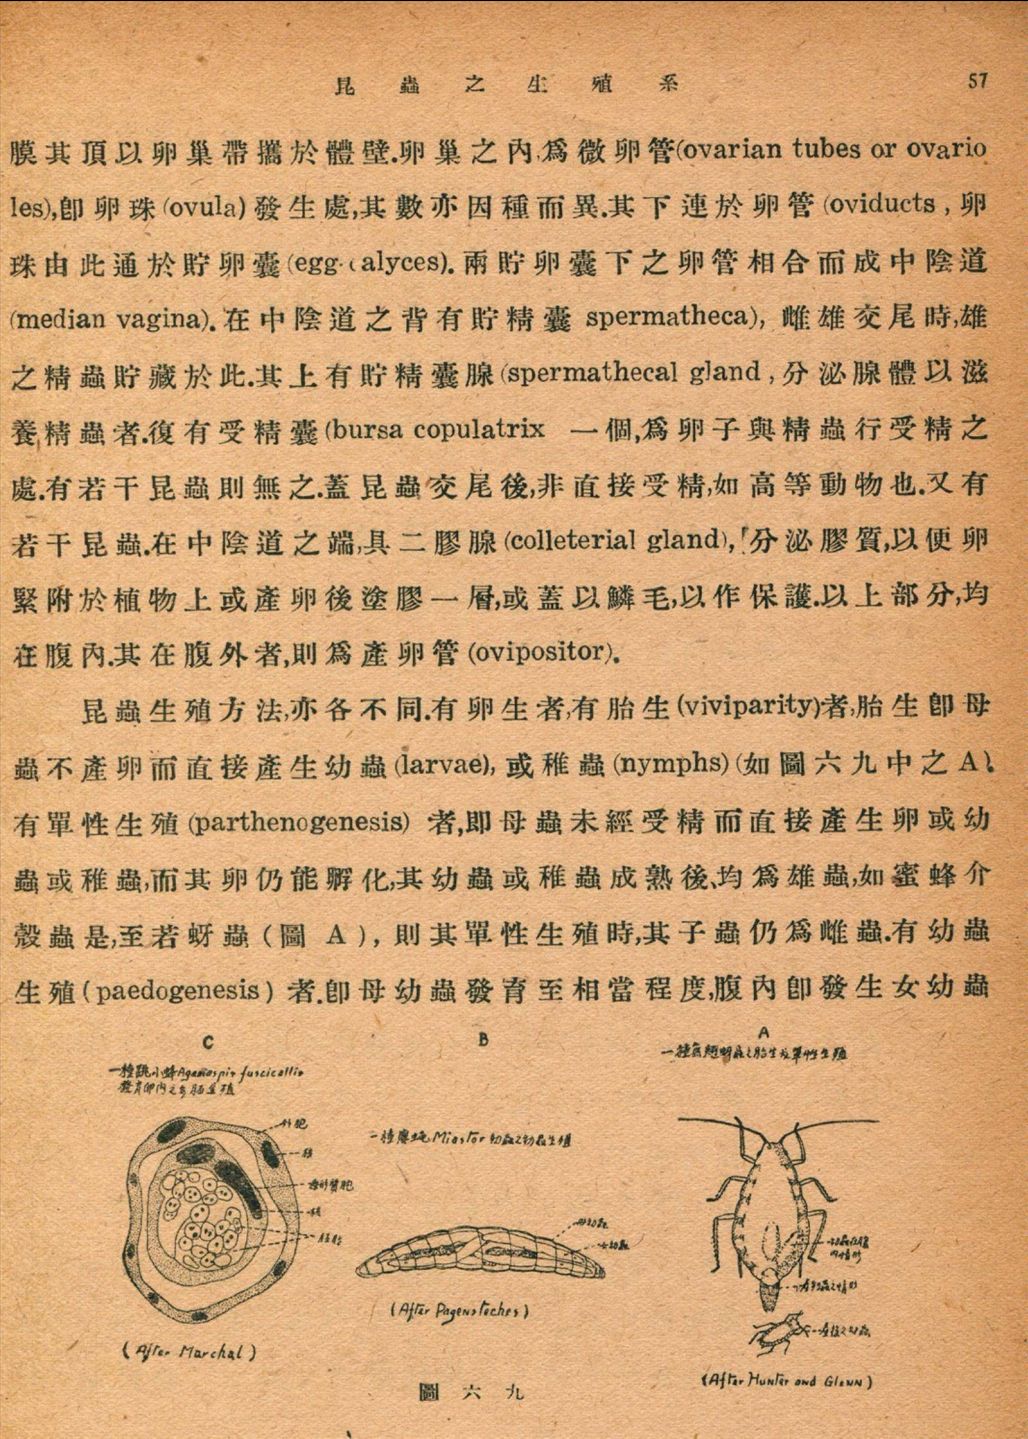 昆蟲之生殖系 57
膜其頂以卵巢帶攜於體壁.卵巢之內,爲微卵管(ovarian tubes or ovario
les),卽卵珠(ovula)發生處,其數亦因種而異.其下連於卵管(oviducts,卵
珠由此通於貯卵囊(egg-calyces).兩貯卵囊下之卵管相合而成中陰道
(median vagina).在中陰道之背有貯精囊 spermatheca), 雌雄交尾時,雄
之精蟲貯藏於此.其上有貯精囊腺(spermathecal gland,分泌腺體以滋
養精蟲者.復有受精囊(bursa copulatrix 一個,爲卵子與精蟲行受精之
處.有若干昆蟲則無之.蓋昆蟲交尾後,非直接受精,如高等動物也.又有
若干昆蟲.在中陰道之端,具二膠腺(colleterial gland),分泌膠質,以便卵
緊附於植物上或產卵後塗膠一層,或蓋以鱗毛,以作保護.以上部分,均
在腹內.其在腹外者,則爲產卵管(ovipositor).
昆蟲生殖方法,亦各不同.有卵生者,有胎生(viviparity)者,胎生卽母
蟲不產卵而直接產生幼蟲(larvae), 或稚蟲(nymphs)(如圖六九中之A).
有單性生殖(parthenogenesis) 者,即母蟲未經受精而直接產生卵或幼
蟲或稚蟲,而其卵仍能孵化,其幼蟲或稚蟲成熟後,均爲雄蟲,如蜜蜂介
殼蟲是,至若蚜蟲(圖 A), 則其單性生殖時,其子蟲仍爲雌蟲.有幼蟲
生殖(paedogenesis) 者.卽母幼蟲發育至相當程度,腹內卽發生女幼蟲
C
一種跳小蜂Ageniaspis fuscicollis
發育卵內之多胚生殖
外胞
核
核
胚胎
(After Marchal)
B
一種癭蚊Miastor幼蟲之幼蟲生殖
母幼蟲
女幼蟲
(After Pagenstecher)
A
一種無翅蚜蟲之胎生及單性生殖
產後之幼蟲
(After Hunter and Glenn)
圖六九